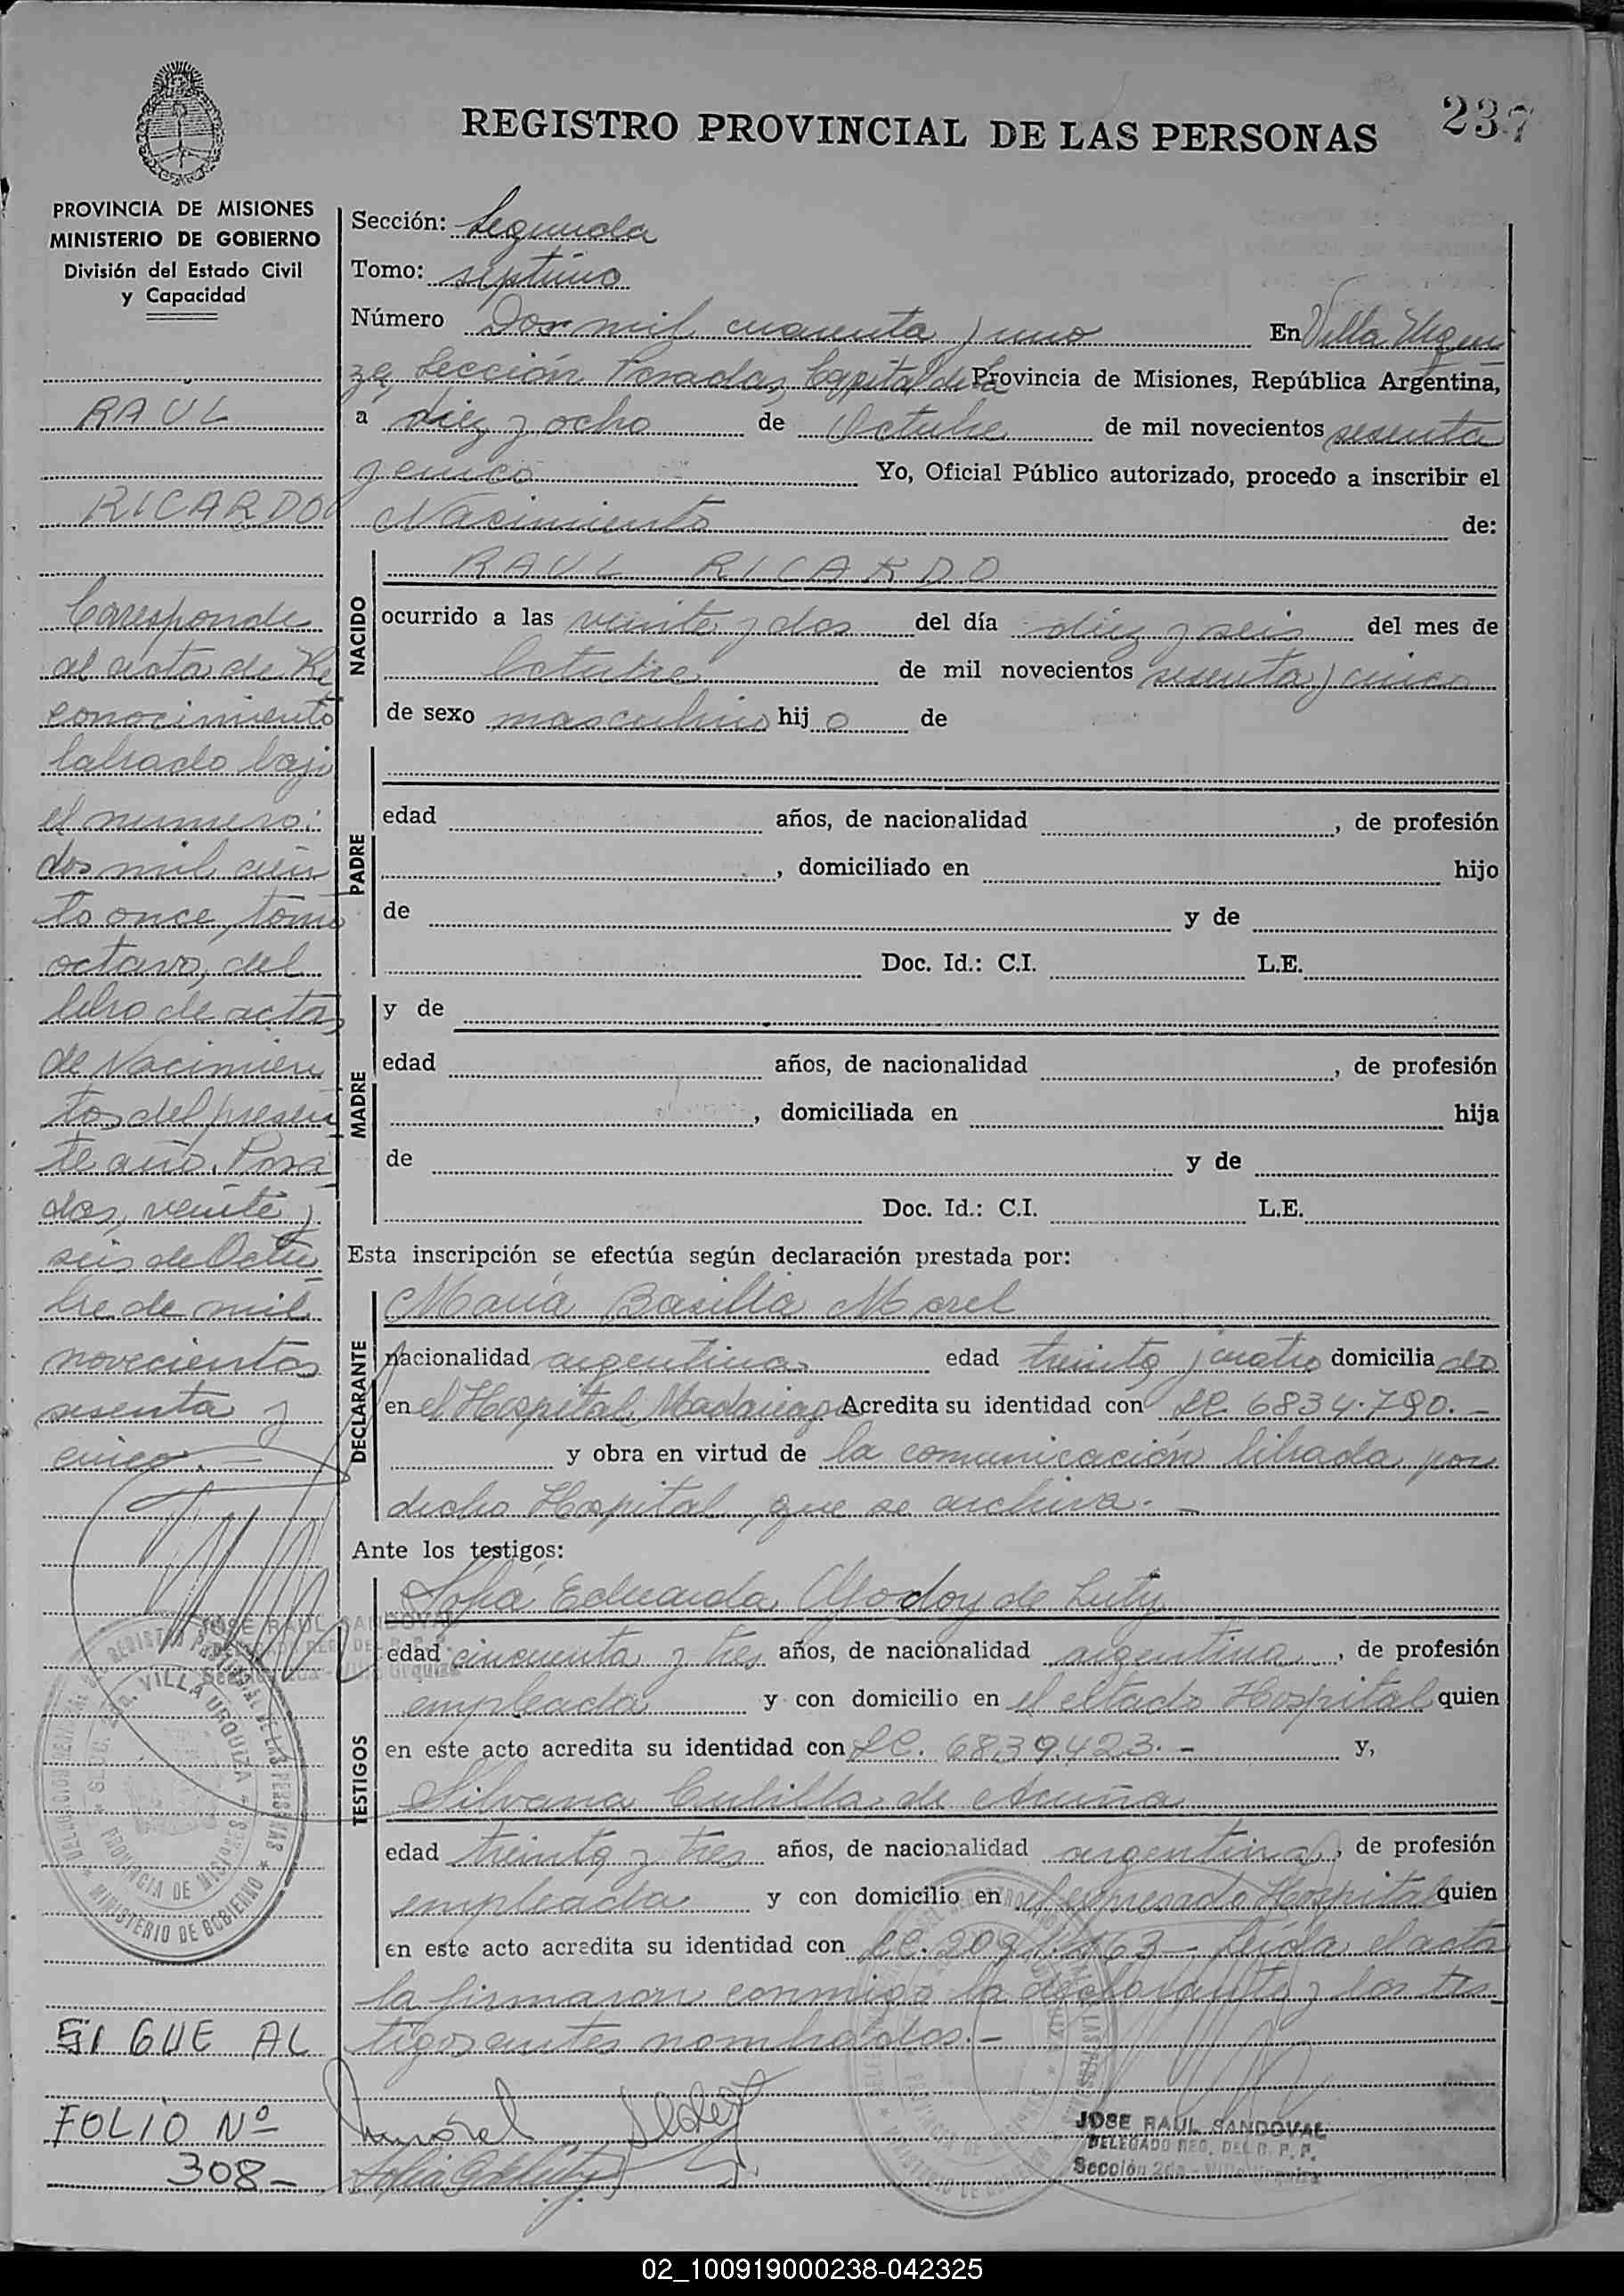 REGISTRO PROVINCIAL DE LAS PERSONAS
237
PROVINCIA DE MISIONES
MINISTERIO DE GOBIERNO
División del Estado Civil
y Capacidad
RAUL
RICARDO
Corresponde
al acta de Re
conocimiento
labrado bajo
el numero:
dos mil cien
to once, tomo
octavo, del
libro de actas
de Nacimien
tos del presen
te año. Posa
das, veinte y
seis de Octu
bre de mil
novecientos
sesenta y
cinco.-
JOSE RAUL SANDOVAL
VILLA URQUIZA
PROVINCIA DE MISIONES
MINISTERIO DE GOBIERNO
SIGUE AL
FOLIO Nº
308-
Sección: Segunda
Tomo: septimo
Número Dos mil cuarenta y uno En Villa Urqui
za, Sección Posadas, Capital de la Provincia de Misiones, República Argentina,
a diez y ocho de Octubre de mil novecientos sesenta
y cinco Yo, Oficial Público autorizado, procedo a inscribir el
Nacimiento de:
NACIDO
RAUL RICARDO
ocurrido a las veinte y dos del día diez y seis del mes de
Octubre de mil novecientos sesenta y cinco
de sexo masculino hij o de
PADRE
edad años, de nacionalidad , de profesión
, domiciliado en hijo
de y de
Doc. Id.: C.I. L.E.
MADRE
y de
edad años, de nacionalidad , de profesión
, domiciliada en hija
de y de
Doc. Id.: C.I. L.E.
Esta inscripción se efectúa según declaración prestada por:
DECLARANTE
María Basilia Morel
nacionalidad argentina edad treinta y cuatro domicilia da
en el Hospital Madariaga Acredita su identidad con LC. 6834.790.-
y obra en virtud de la comunicación librada por
dicho Hospital, que se archiva.-
Ante los testigos:
TESTIGOS
Sofia Eduarda Godoy de Luty
edad cincuenta y tres años, de nacionalidad argentina, de profesión
empleada y con domicilio en el citado Hospital quien
en este acto acredita su identidad con LC. 6839.423.- y,
Silvana Cubilla de Acuña
edad treinta y tres años, de nacionalidad argentina, de profesión
empleada y con domicilio en el expresado Hospital quien
en este acto acredita su identidad con LC. Leída el acta
la firmaron conmigo la declarante y los tes
tigos antes nombrados.-
JOSE RAUL SANDOVAL
DELEGADO REG. DEL R. P. P.
Sección 2da - Villa Urquiza
02_100919000238-042325